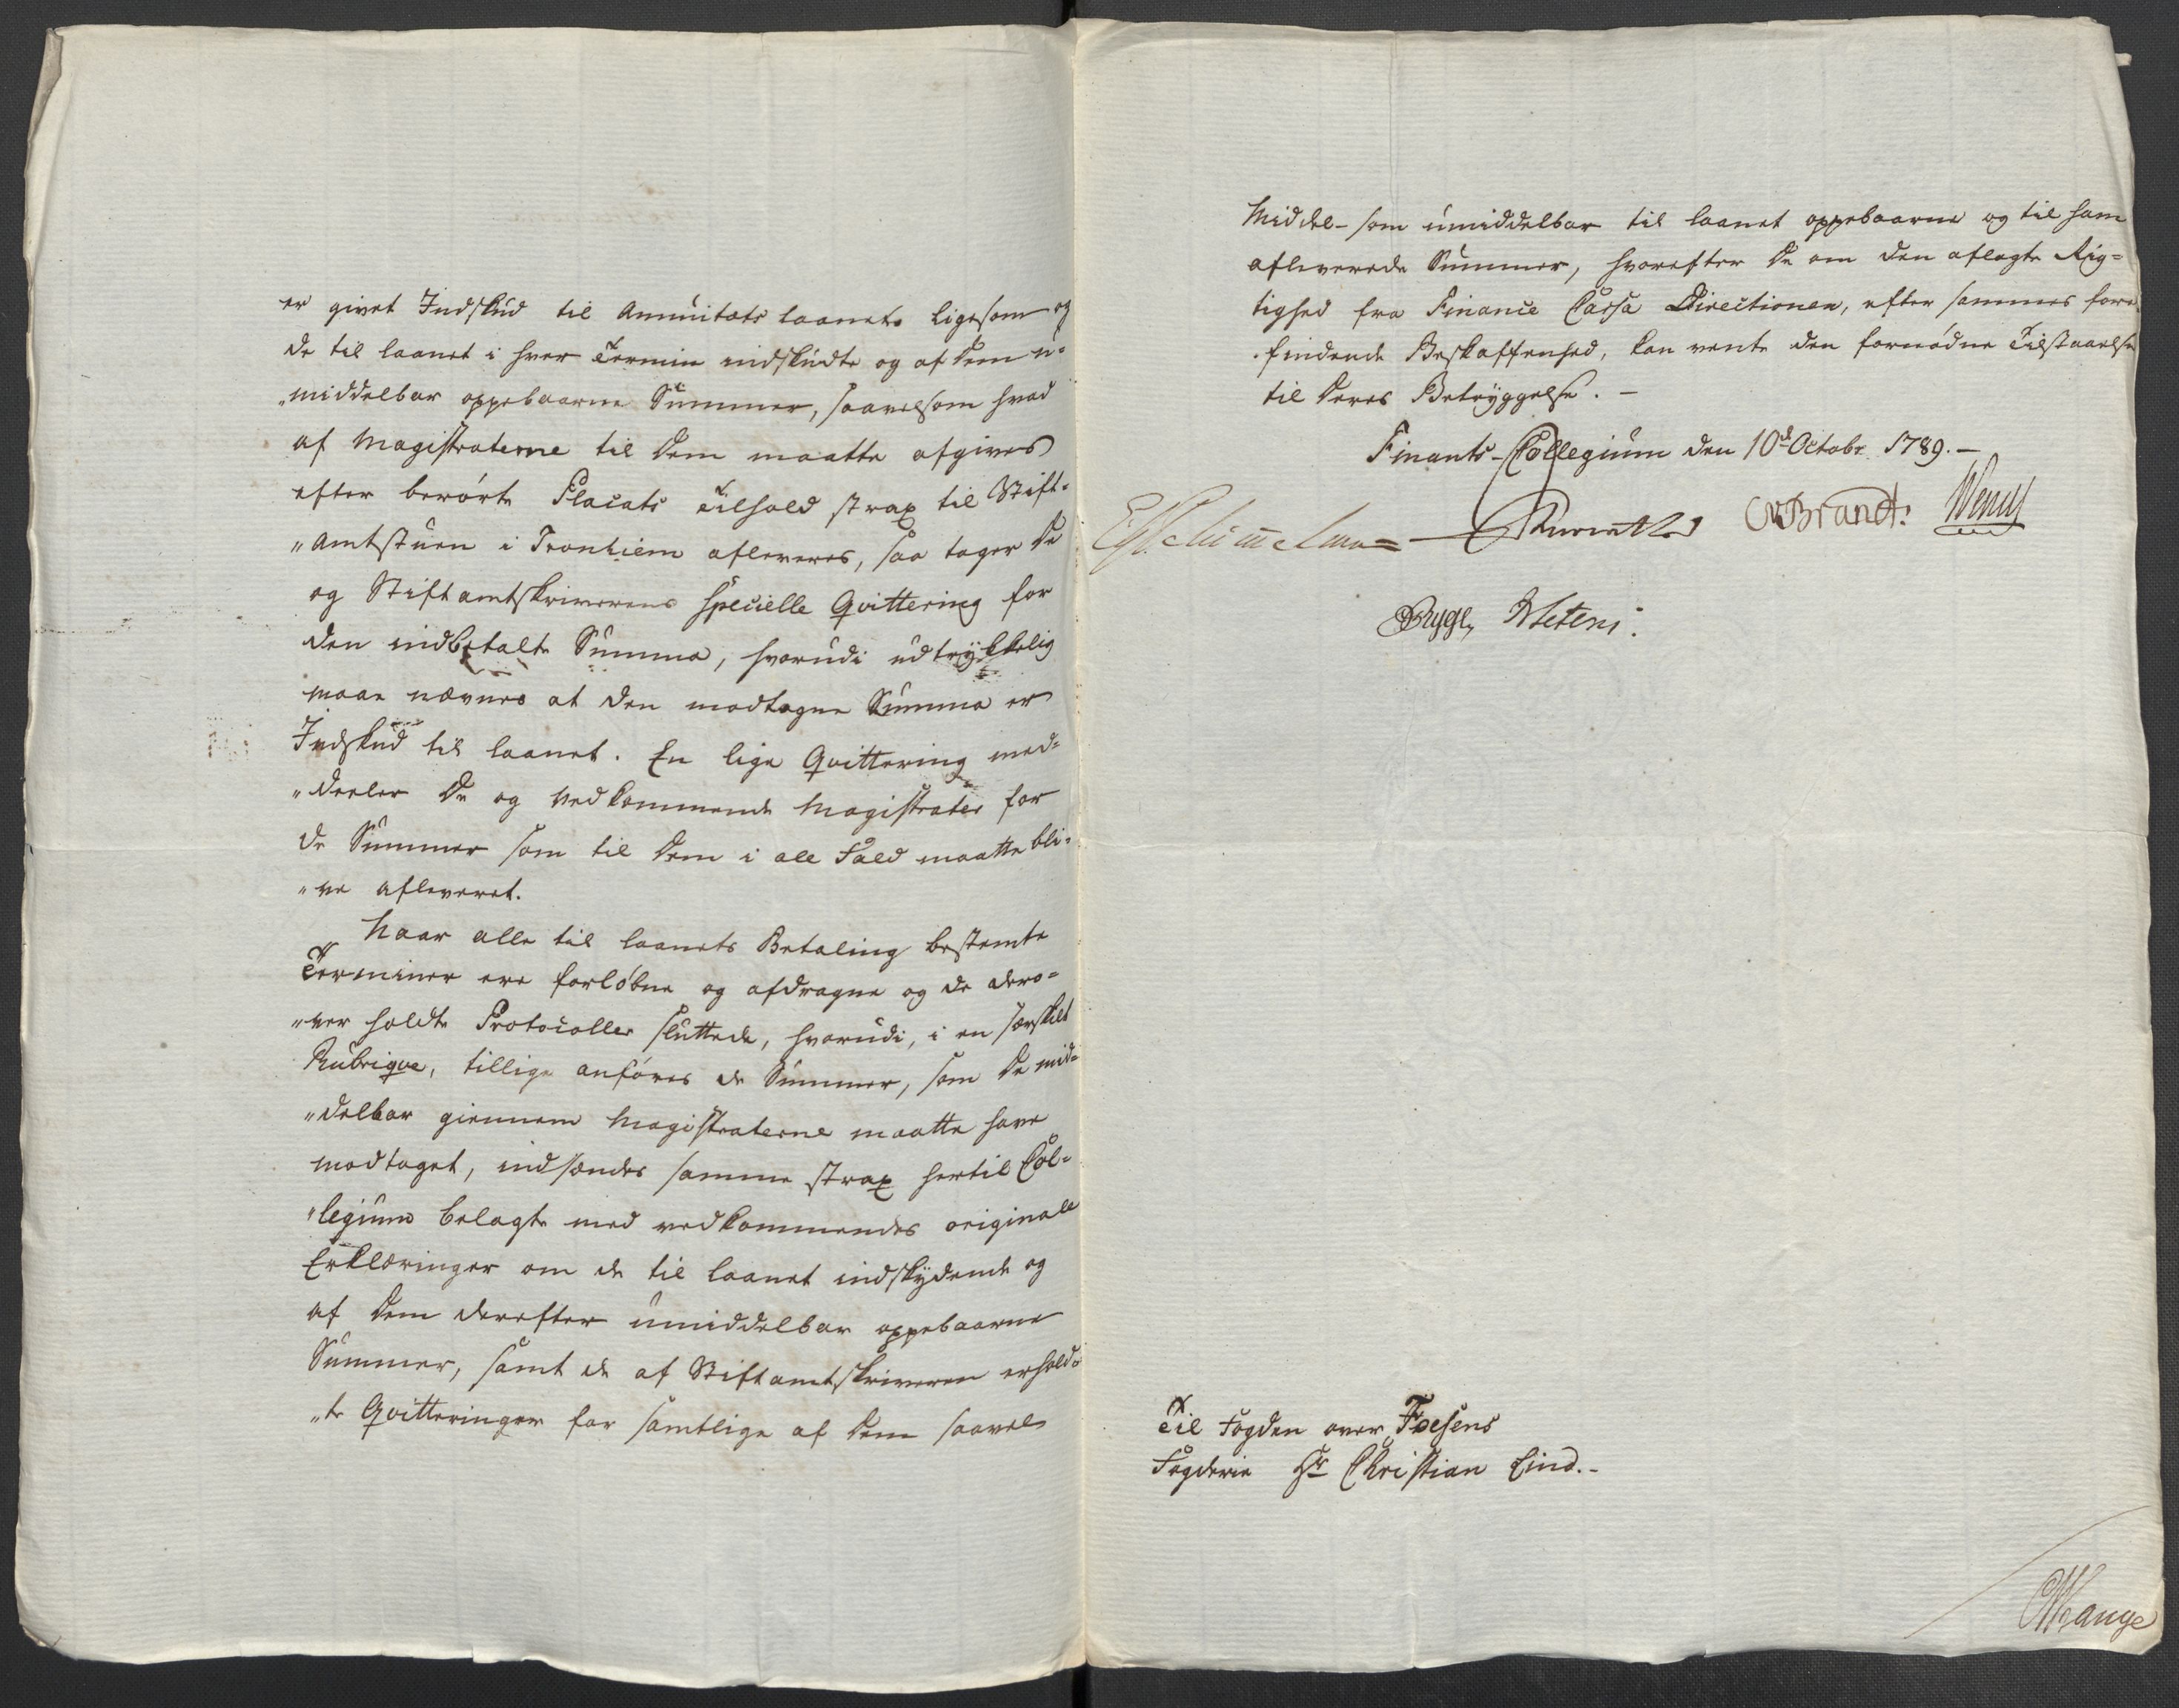 er givet Indskud til Annuitets Laanet. Ligesom og
de til Laanet i hver Termin indskudte og af Dem u-
"middelbar oppebaarne Summer, saavelsom hvad
af Magistraterne til Dem maatte afgives
efter berørte Placats Tilhold strax til Stift-
"amtstuen i Tronhiem afleveres, saa tager De
og Stiftamtskriverens specielle Qvittering for
den indbetalte Summa, hvorudi udtrykkelig
maae nævnes at den modtagne Summa er
Indskud til Laanet. En lige Qvittering med-
"deeler De og vedkommende Magistrater for
de Summer som til Dem i all Fald maatte bli-
"ve afleveret.
Naar alle til Laanets Betaling bestemte
Terminer ere forløbne og afdragne og de der o-
"ver holdte Protocoller sluttede, hvorudi, i en særskilt
Rubriqve, tillige anføres de Summer, som De mid-
"delbar giennem Magistraterne maatte have
modtaget, indsendes samme strax hertil Col-
"legium belagte med vedkommendes originale
Erklæringer om de til Laanet indskydende og
af Dem derefter umiddelbar oppebaarne
Summer, samt de af Stiftamtskriveren erhold-
"te Qvitteringer for samtlige af Dem saavel
Middel- som umiddelbar til Laanet oppebaarne og til ham
afleverede Summer, hvorefter De om den aflagte Rig-
tighed fra Finance Cassa Directionen, efter sammes fore-
findende Beskaffenhed, kan vente den fornødne Tilstaaelse
til Deres Betryggelse. —
Finants-Collegium den 10de Octobr 1789. —
ESchimmelmann Brandt: Wendt
Rygl,
Til Fogden over Fosens
Fogderie Hr Christian Lind.-
Mange